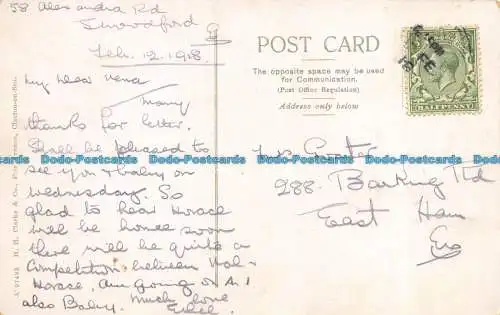 58 Alexandra Rd
S. Woodford
Feb. 12. 1918
My dear Vena
Many
thanks for letter.
Shall be pleased to
see you & baby on
Wednesday. So
glad to hear Horace
will be home soon
there will be quite a
Competition between
Horace, am going on A.1
also Baby. Much love
Ethel.
POST CARD
The opposite space may be used
for Communication.
(Post Office Regulation)
Address only below
HALFPENNY
Mrs
288. Barking Rd
East Ham
Dodo-Postcards Dodo-Postcards Dodo-Postcards Dodo-Postcards Dodo-Postcards
Dodo-Postcards Dodo-Postcards Dodo-Postcards Dodo-Postcards
Clacton-on-Sea.